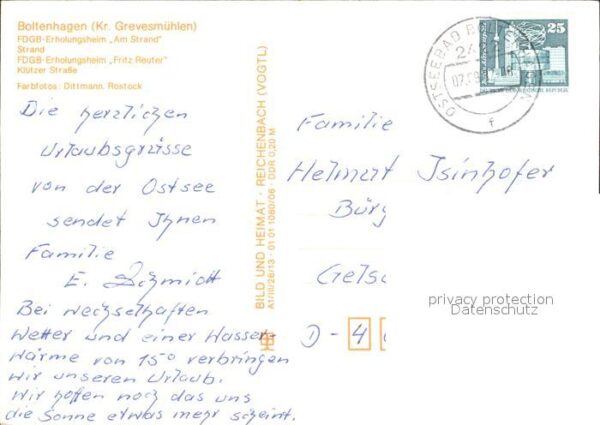 Boltenhagen (Kr. Grevesmühlen)
FDGB-Erholungsheim „Am Strand"
Strand
FDGB-Erholungsheim „Fritz Reuter"
Klützer Straße
Farbfotos: Dittmann, Rostock
Die herzlichen
Urlaubsgrüsse
von der Ostsee
sendet Ihnen
Familie
E. Schmidt
Bei wechselhaften
Wetter und einer Wasser-
wärme von 15° verbringen
wir unseren Urlaub.
Wir hoffen noch das uns
die Sonne etwas mehr scheint.
BILD UND HEIMAT · REICHENBACH (VOGTL)
A1/III/26/13 · 01 01 1080/06 · DDR 0,20 M
OSTSEEBAD
25
Familie
Helmut Isinhofer
Bürg
Gelsc
D - 4
privacy protection
Datenschutz